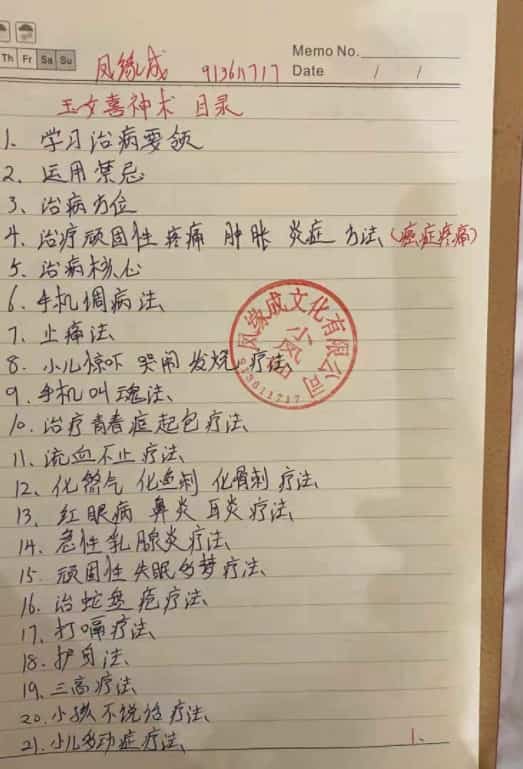 Th Fr Sa Su
Memo No.
Date / /
凤缘成 913611717
玉女喜神术 目录
1、学习治病要领
2、运用禁忌
3、治病方位
4、治疗顽固性疼痛 肿胀 炎症 方法(癌症疼痛)
5、治病核心
6、手机调病法
7、止痛法
8、小儿惊吓 哭闹 发烧 疗法
9、手机叫魂法
10、治疗青春症起包疗法
11、流血不止疗法
12、化煞气 化鱼刺 化骨刺 疗法
13、红眼病 鼻炎 耳炎疗法
14、急性乳腺炎疗法
15、顽固性失眠多梦疗法
16、治蛇盘疮疗法
17、打嗝疗法
18、护身法
19、三高疗法
20、小孩不说话疗法
21、小儿多动症疗法
1、
凤缘成文化有限公司
913611717